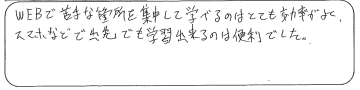 WEBで苦手な箇所を集中して学べるのはとても効率がよく、
スマホなどで出先でも学習出来るのは便利でした。